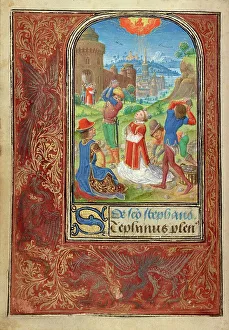 De sco stephano.
Stephanus plen